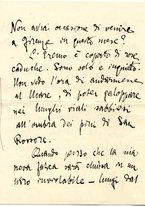 Non avrai occasione di venire
a Firenze in questo mese?
L'eremo è coperto di rose
caduche. Sono solo e inquieto.
Non vedo l'ora di andarmene
al Mare, di poter galoppare
nei lunghi viali sabbiosi
all'ombra dei pini di San
Rossore.
Quando penso che la mia
nuova farza sarà chiusa in un
vero inviolabile — lungi dal